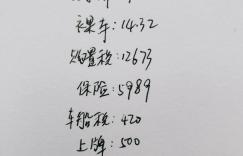 裸车:14.32
购置税:12673
保险:5989
车船税:420
上牌:500